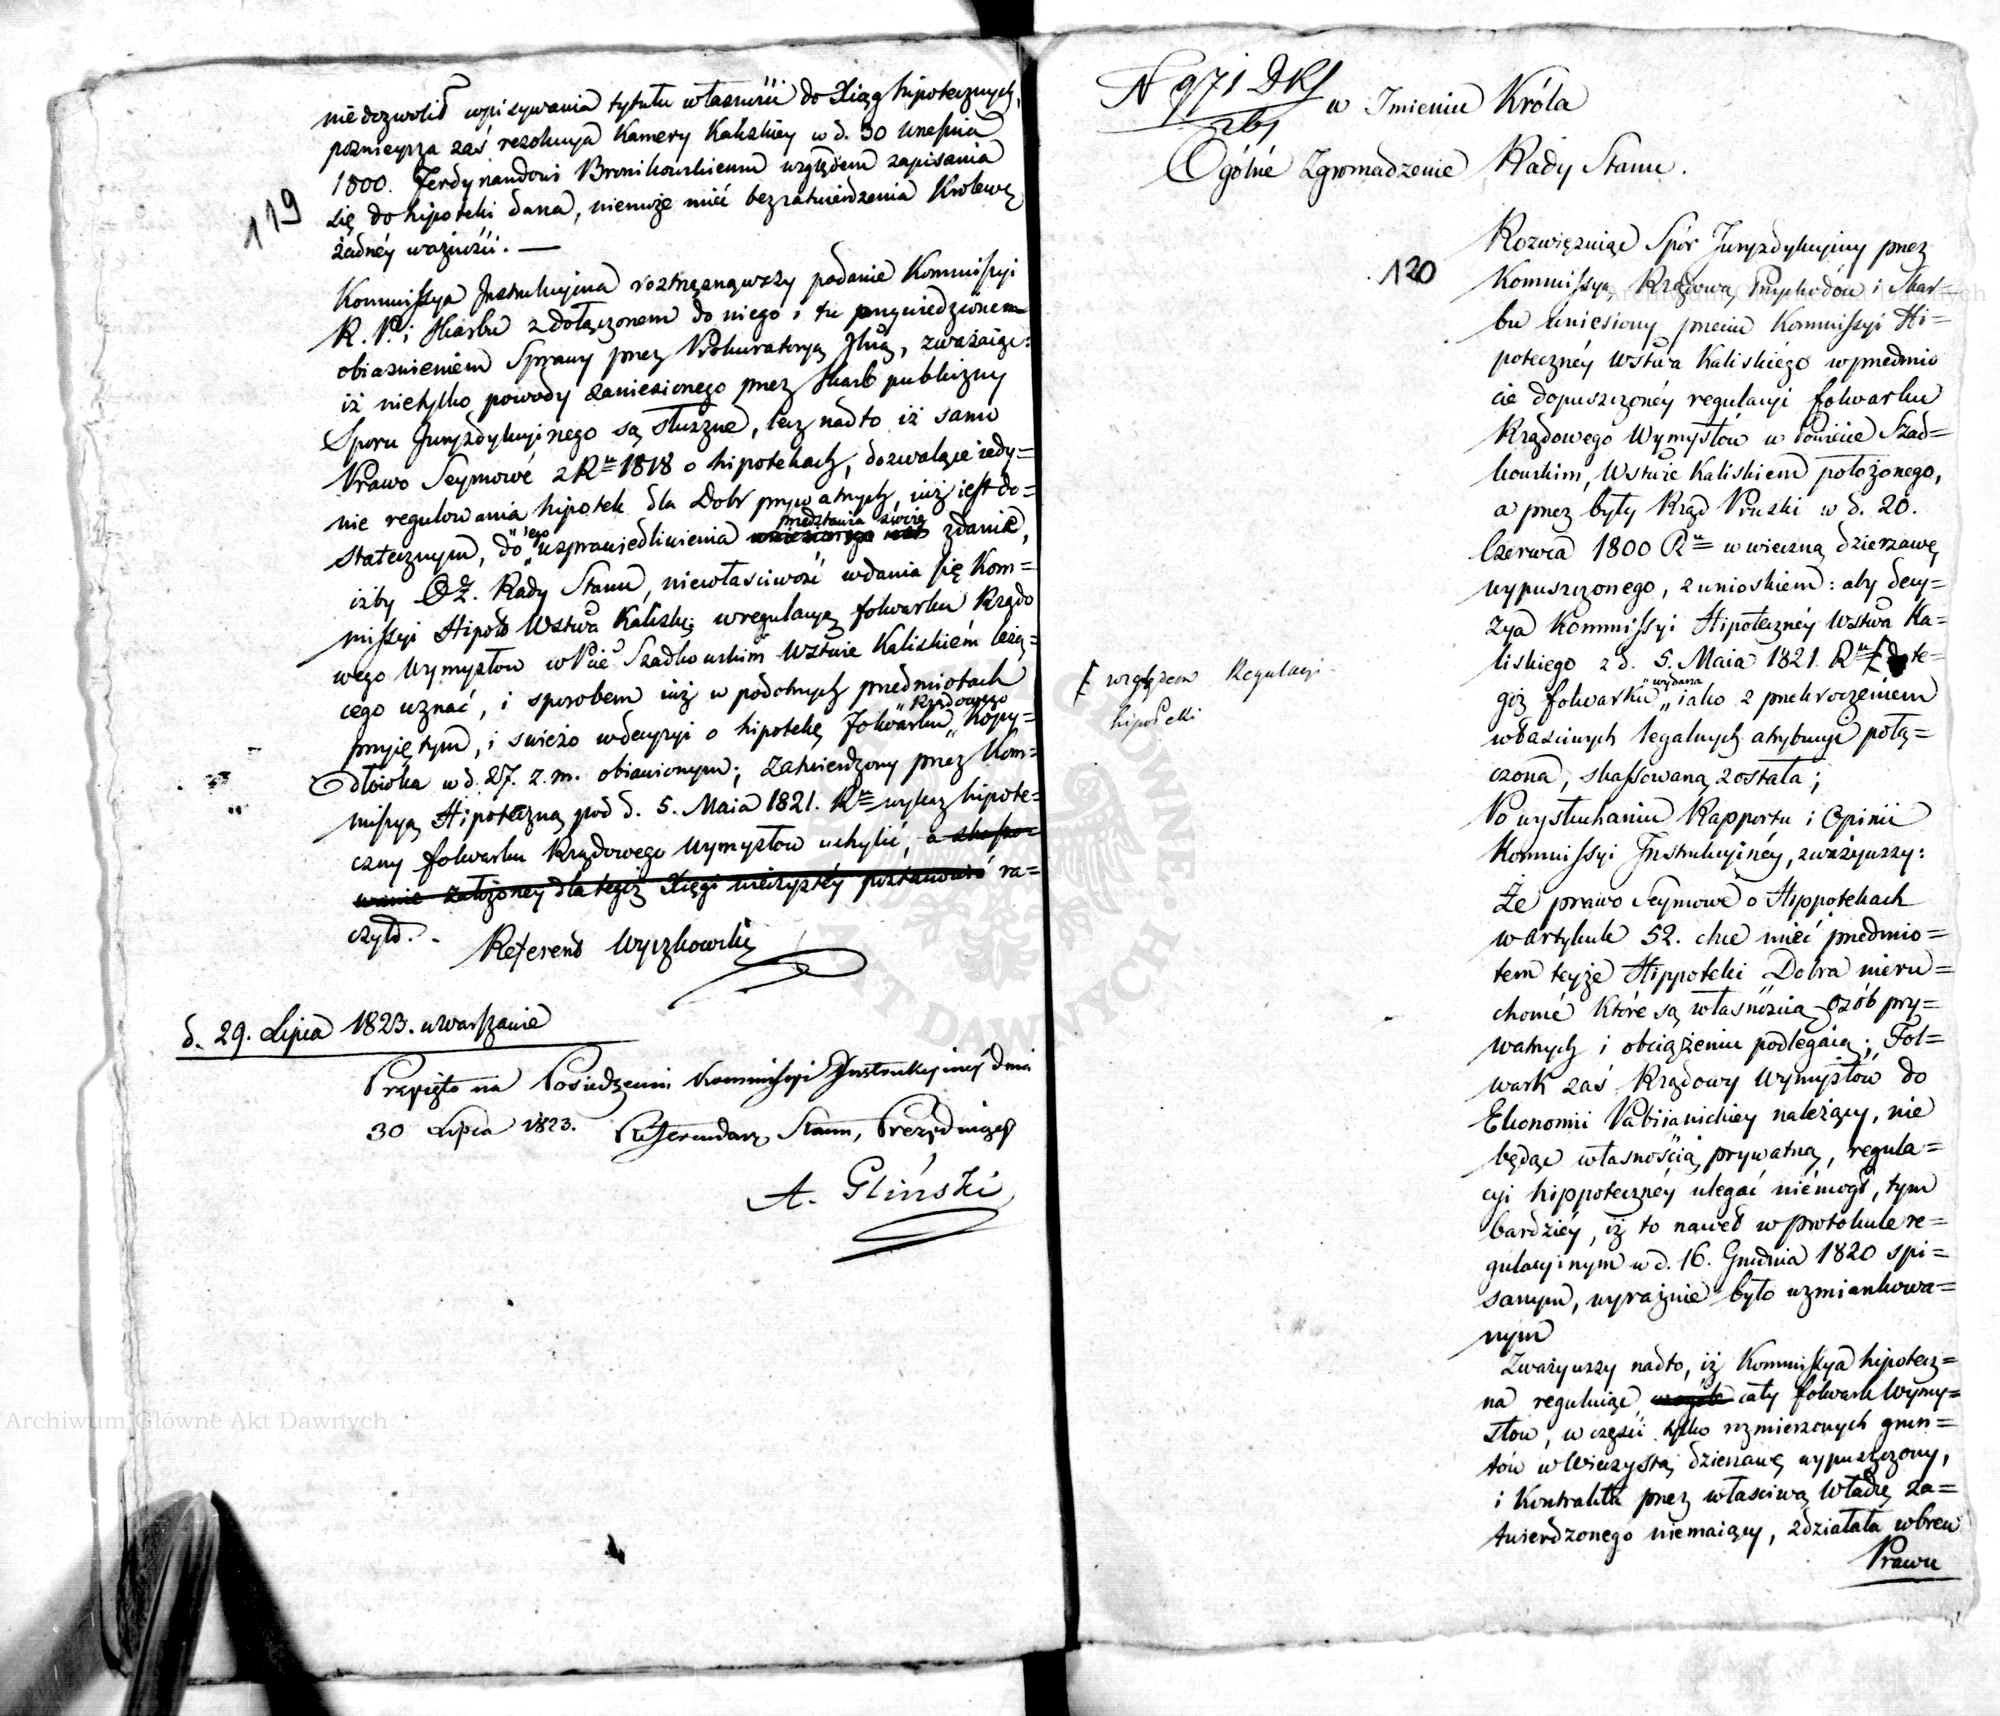 119
niedozwolił wpisywania tytułu własności do Xiąg hipotecznych,
poznieysza zaś rezolucya Kamery Kaliskiey w d. 30 Września
1800. Ferdynandowi Bronikowskiemu względem zapisania
się do hipoteki dana, niemoże mieć bez zatwierdzenia Królews:
żadnéy ważności. —
Kommissya Instrukcyina roztrząsnąwszy podanie Kommissyi
R. P. i Skarbu z dołączonem do niego i tu przywiedzionem
obiaśnieniem Sprawy przez Prokuratoryą Jlną, zważaiąc:
iż nietylko powody zaniesionego przez Skarb publiczny
Sporu Juryzdykcyinego są słuszne, lecz nadto iż samo
Prawo Seymowé z Ru 1818 o hipotekach, dozwalaiące iedy=
nie regulowania hipotek dla Dobr prywatnych, iuż iest do=
statecznym, do „iego usprawiedliwienia przedstawia swoie zdanie,
iżby O.Z. Rady Stanu, niewłaściwość wdania się Kom=
missyi Hipot: Wztwa Kaliskie: w regulacyą folwarku Rządo
wego Wymysłow w Pcie Szadkowskim Wztwie Kaliskiém leżą=
cego uznać, i sposobem iuż w podobnych przedmiotach
przyiętym, i swieżo w decyzyi o hipotekę Folwarku „Rządowego Kopy=
dłówka w d. 27. z. m. obiawionym; zatwierdzony przez Kom=
missyą Hipoteczną pod d. 5. Maia 1821. Ru wykaz hipote=
czny folwarku Rządowego Wymysłow uchylić, a skasso=
wanie założoney dla tegoż Xięgi wieczystéy postanowić ra=
czyło. -
Referent Wyczkowski
d. 29. Lipca 1823. w Warszawie
Przyięto na Posiedzeniu Kommissyi Instrukcyinéy dnia
30 Lipca 1823. Referendarz Stanu, Prezyduiący
A. Gliński
N 971 DKS
261
w Imieniu Króla
Ogólné Zgromadzenie Rady Stanu.
120
Rozwięzuiąc Spór Juryzdykcyiny przez
Kommissyą Rządową Przychodów i Skar=
bu wniesiony przeciw Kommissyi Hi=
potecznéy Wztwa Kaliskiégo w przedmio
cie dopuszczonéy regulacyi folwarku
Rządowego Wymysłów w Powiecie Szad=
kowskim, Wztwie Kaliskiém położonego,
a przez były Rząd Pruski w d. 20.
Czerwca 1800 Ru w wieczną dzierzawę
wypuszczonego, z wnioskiem: aby decy=
zya Kommissyi Hipotecznéy Wztwa Ka=
liskiego z d. 5. Maia 1821. Ru [ do te=
goż folwarku „wydana iako z przekroczeniem
właściwych legalnych atrybucyi połą=
czona, skassowaną została;
[ względem Regulacyi
hipoteki
Po wysłuchaniu Rapportu i Opinii
Kommissyi Instrukcyinéy, zważywszy:
Że prawo Seymowé o Hippotekach
w artykule 52. chce mieć przedmio=
tem teyże Hippoteki Dobra nieru=
chomé które są własnością osób pry=
watnych i obciążeniu podlegaią; Fol=
wark zaś Rządowy Wymysłów do
Ekonomii Pabijanickiey należący, nie
będąc własnością prywatną, regula=
cyi hippotecznéy ulegać niémógł, tym
bardziéy, iż to nawet w protokule re=
gulacyinym w d. 16. Grudnia 1820 spi=
sanym, wyraźnie było wzmiankowa=
nym
Zważywszy nadto, iż Kommissya hipotecz=
na reguluiąc cały folwark Wymy=
słow, w części tylko rozmierzonych grun=
tów w Wieczystą dzierzawę wypuszczony,
i Kontraktu przez właściwą Władzę za=
twierdzonego niemaiący, zdziałała wbrew
Prawu
Archiwum Główne Akt Dawnych